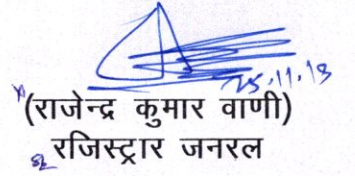 25.11.13
(राजेन्द्र कुमार वाणी)
रजिस्ट्रार जनरल